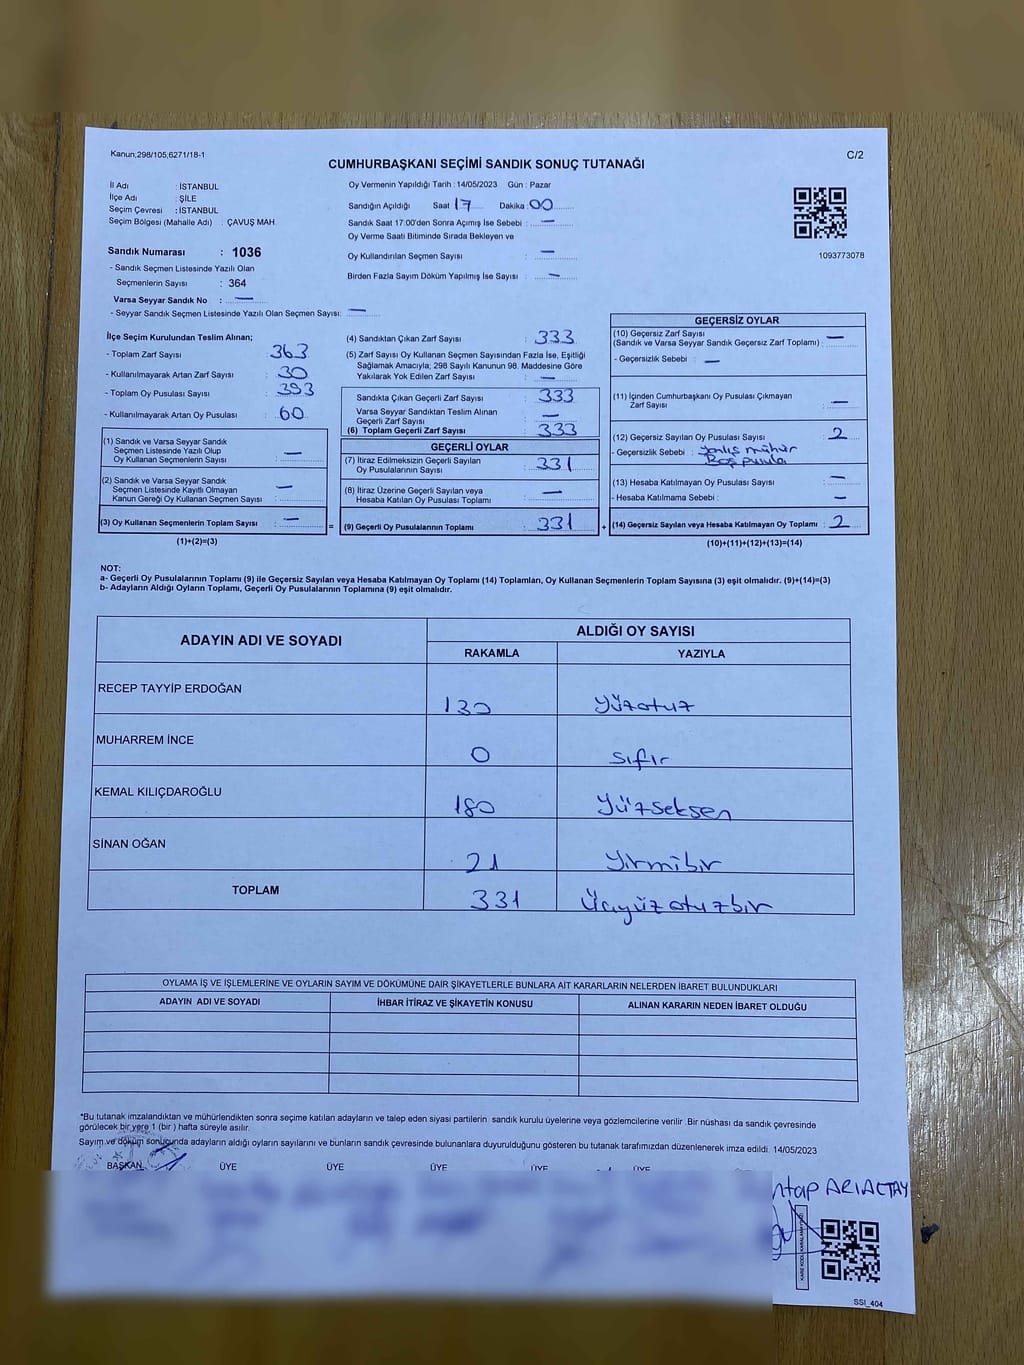 Kanun;298/105;6271/18-1
C/2
CUMHURBAŞKANI SEÇİMİ SANDIK SONUÇ TUTANAĞI
İl Adı : İSTANBUL
İlçe Adı : ŞİLE
Seçim Çevresi : İSTANBUL
Seçim Bölgesi (Mahalle Adı) : ÇAVUŞ MAH.
Sandık Numarası : 1036
- Sandık Seçmen Listesinde Yazılı Olan
Seçmenlerin Sayısı : 364
Varsa Seyyar Sandık No : —
- Seyyar Sandık Seçmen Listesinde Yazılı Olan Seçmen Sayısı: —
Oy Vermenin Yapıldığı Tarih : 14/05/2023 Gün : Pazar
Sandığın Açıldığı Saat 17 Dakika : 00
Sandık Saat 17:00'den Sonra Açımış İse Sebebi : —
Oy Verme Saati Bitiminde Sırada Bekleyen ve
Oy Kullandırılan Seçmen Sayısı : —
Birden Fazla Sayım Döküm Yapılmış İse Sayısı : —
1093773078
İlçe Seçim Kurulundan Teslim Alınan;
- Toplam Zarf Sayısı : 363
- Kullanılmayarak Artan Zarf Sayısı : 30
- Toplam Oy Pusulası Sayısı : 393
- Kullanılmayarak Artan Oy Pusulası : 60
(1) Sandık ve Varsa Seyyar Sandık
Seçmen Listesinde Yazılı Olup
Oy Kullanan Seçmenlerin Sayısı : —
(2) Sandık ve Varsa Seyyar Sandık
Seçmen Listesinde Kayıtlı Olmayan
Kanun Gereği Oy Kullanan Seçmen Sayısı : —
(3) Oy Kullanan Seçmenlerin Toplam Sayısı : —
(1)+(2)=(3)
(4) Sandıktan Çıkan Zarf Sayısı : 333
(5) Zarf Sayısı Oy Kullanan Seçmen Sayısından Fazla İse, Eşitliği
Sağlamak Amacıyla; 298 Sayılı Kanunun 98. Maddesine Göre
Yakılarak Yok Edilen Zarf Sayısı : —
Sandıkta Çıkan Geçerli Zarf Sayısı : 333
Varsa Seyyar Sandıktan Teslim Alınan
Geçerli Zarf Sayısı : —
(6) Toplam Geçerli Zarf Sayısı : 333
GEÇERLİ OYLAR
(7) İtiraz Edilmeksizin Geçerli Sayılan
Oy Pusulalarının Sayısı : 331
(8) İtiraz Üzerine Geçerli Sayılan veya
Hesaba Katılan Oy Pusulası Toplamı : —
(9) Geçerli Oy Pusulalarının Toplamı : 331
=
+
GEÇERSİZ OYLAR
(10) Geçersiz Zarf Sayısı
(Sandık ve Varsa Seyyar Sandık Geçersiz Zarf Toplamı) : —
- Geçersizlik Sebebi : —
(11) İçinden Cumhurbaşkanı Oy Pusulası Çıkmayan
Zarf Sayısı : —
(12) Geçersiz Sayılan Oy Pusulası Sayısı : 2
- Geçersizlik Sebebi : Yanlış mühür
Boş pusula
(13) Hesaba Katılmayan Oy Pusulası Sayısı : —
- Hesaba Katılmama Sebebi : —
(14) Geçersiz Sayılan veya Hesaba Katılmayan Oy Toplamı : 2
(10)+(11)+(12)+(13)=(14)
NOT:
a- Geçerli Oy Pusulalarının Toplamı (9) ile Geçersiz Sayılan veya Hesaba Katılmayan Oy Toplamı (14) Toplamları, Oy Kullanan Seçmenlerin Toplam Sayısına (3) eşit olmalıdır. (9)+(14)=(3)
b- Adayların Aldığı Oyların Toplamı, Geçerli Oy Pusulalarının Toplamına (9) eşit olmalıdır.
ADAYIN ADI VE SOYADI ALDIĞI OY SAYISI
RAKAMLA YAZIYLA
RECEP TAYYİP ERDOĞAN 130 Yüzotuz
MUHARREM İNCE 0 sıfır
KEMAL KILIÇDAROĞLU 180 Yüzseksen
SİNAN OĞAN 21 Yirmibir
TOPLAM 331 Üçyüzotuzbir
OYLAMA İŞ VE İŞLEMLERİNE VE OYLARIN SAYIM VE DÖKÜMÜNE DAİR ŞİKAYETLERLE BUNLARA AİT KARARLARIN NELERDEN İBARET BULUNDUKLARI
ADAYIN ADI VE SOYADI İHBAR İTİRAZ VE ŞİKAYETİN KONUSU ALINAN KARARIN NEDEN İBARET OLDUĞU
*Bu tutanak imzalandıktan ve mühürlendikten sonra seçime katılan adayların ve talep eden siyasi partilerin sandık kurulu üyelerine veya gözlemcilerine verilir .Bir nüshası da sandık çevresinde
görülecek bir yere 1 (bir ) hafta süreyle asılır.
Sayım ve döküm sonucunda adayların aldığı oyların sayılarını ve bunların sandık çevresinde bulunanlara duyurulduğunu gösteren bu tutanak tarafımızdan düzenlenerek imza edildi. 14/05/2023
BAŞKAN ÜYE ÜYE ÜYE ÜYE ÜYE
SSI_404